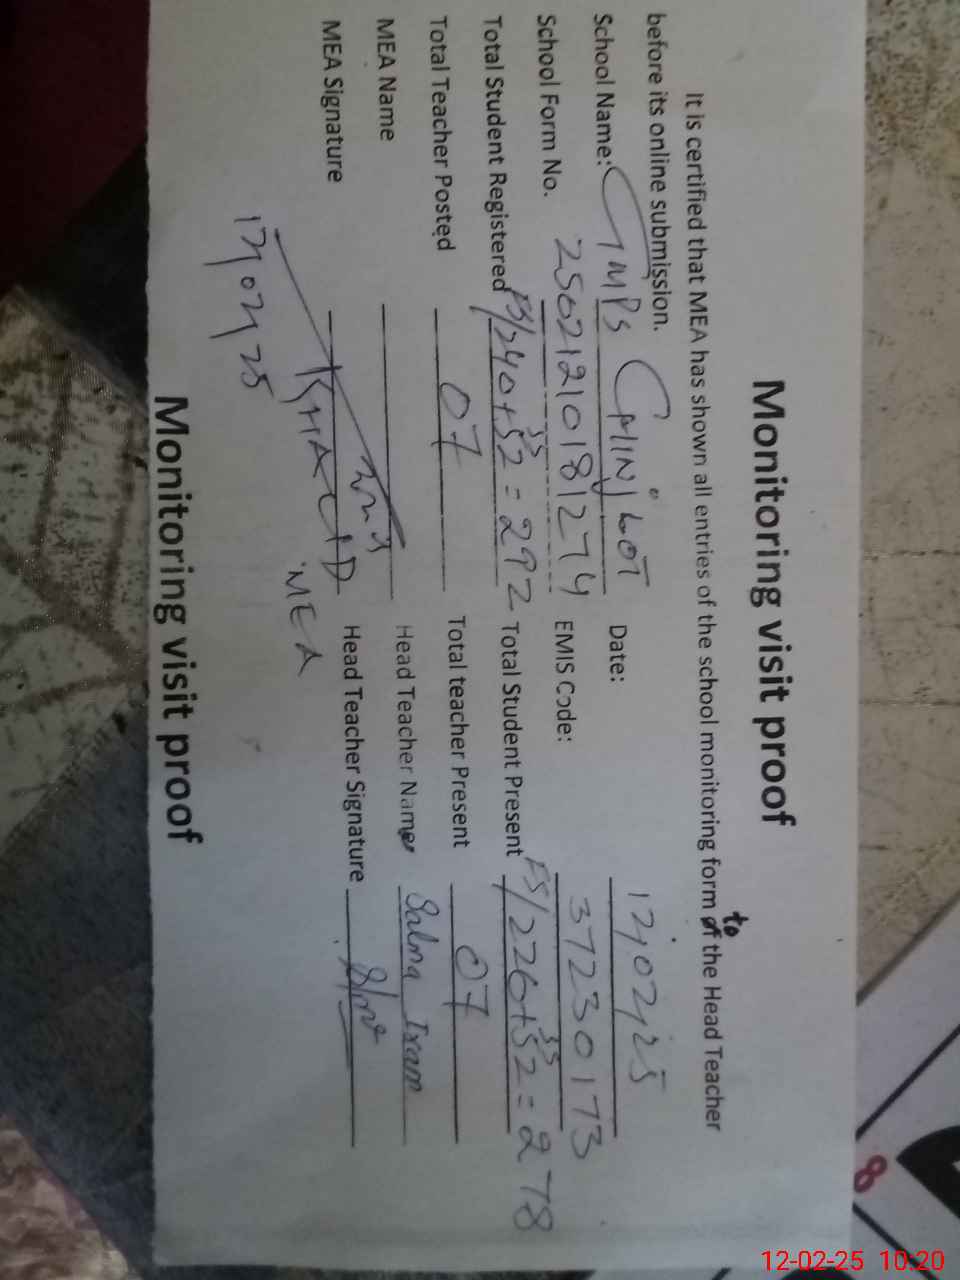 Monitoring visit proof
It is certified that MEA has shown all entries of the school monitoring form to the Head Teacher
before its online submission.
School Name: GMPS Date: 12/02/25
School Form No. 256212101812774 EMIS Code: 37230173
Total Student Registered 240+52=292 Total Student Present 226+52=278
Total Teacher Posted 07 Total teacher Present 07
MEA Name Head Teacher Name Salma Iram
MEA Signature Head Teacher Signature
KHALID
MEA
12/02/25
Monitoring visit proof
8
12-02-25 10:20